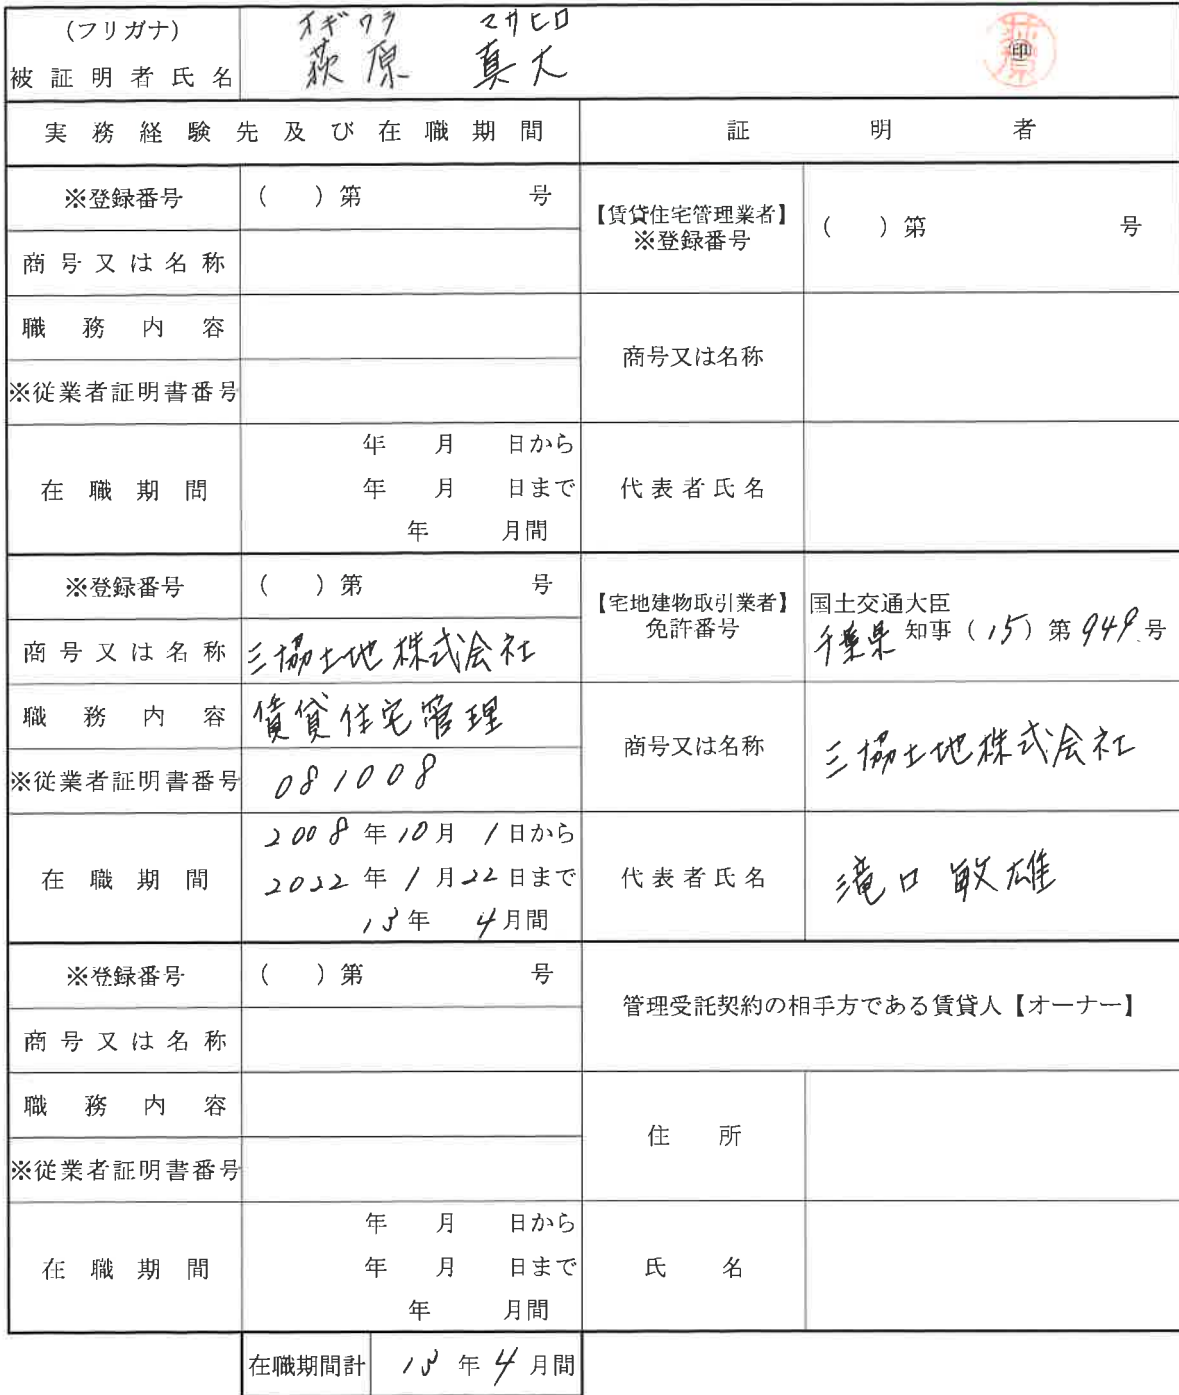 (フリガナ) オギワラ マサヒロ
被証明者氏名 荻原 真大 印
実務経験先及び在職期間 証明者
※登録番号 ( )第 号
【賃貸住宅管理業者】
※登録番号 ( )第 号
商号又は名称
職務内容
商号又は名称
※従業者証明書番号
在職期間 年 月 日から
年 月 日まで
年 月間
代表者氏名
※登録番号 ( )第 号
【宅地建物取引業者】
免許番号
国土交通大臣
千葉県 知事 (15) 第 949 号
商号又は名称 三協土地株式会社
職務内容 賃貸住宅管理
商号又は名称 三協土地株式会社
※従業者証明書番号 081008
在職期間 2008 年 10 月 1 日から
2022 年 1 月 22 日まで
13 年 4 月間
代表者氏名 滝口 敏雄
※登録番号 ( )第 号
管理受託契約の相手方である賃貸人【オーナー】
商号又は名称
職務内容
住所
※従業者証明書番号
在職期間 年 月 日から
年 月 日まで
年 月間
氏名
在職期間計 13 年 4 月間